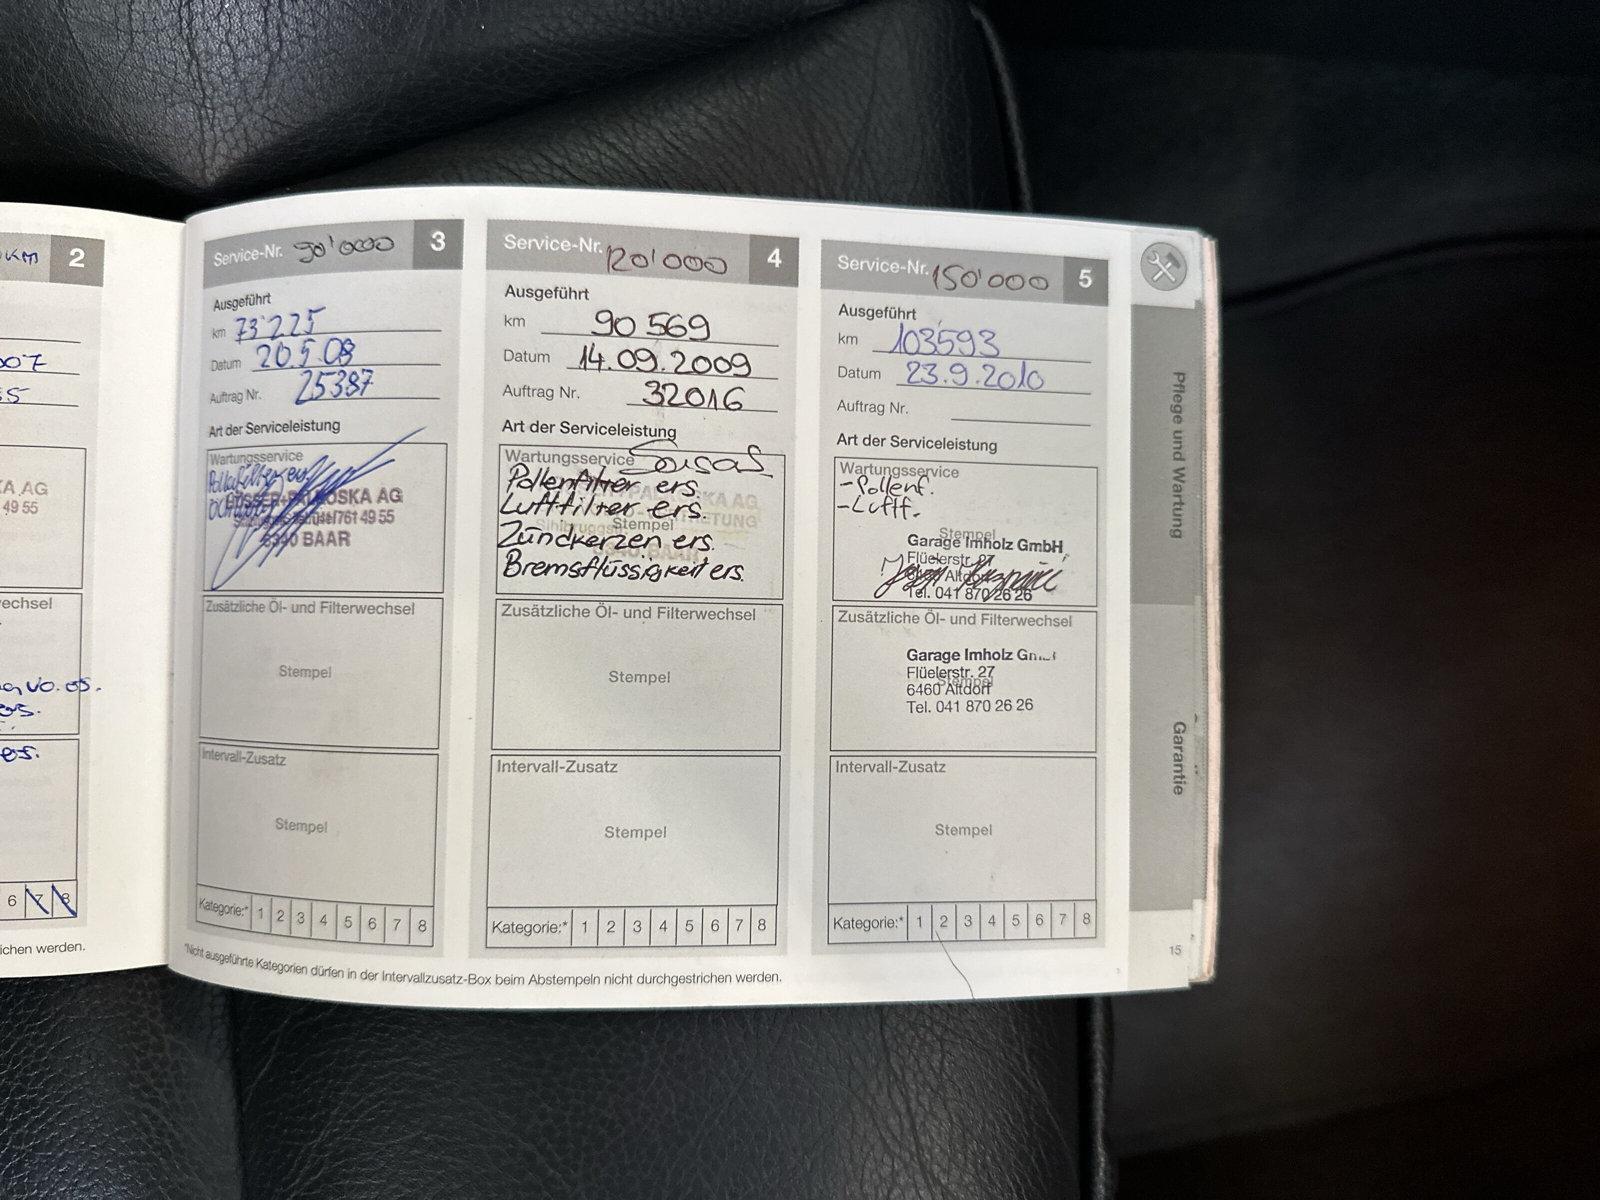 KM 2
007
55
KA AG
49 55
echsel
vo. es.
es.
es.
6 7 8
ichen werden.
Service-Nr. 90'000 3
Ausgeführt
km 73'225
Datum 20.5.08
Auftrag Nr. 25387
Art der Serviceleistung
Wartungsservice
Pollenfilter ers.
OSKA AG
761 49 55
6340 BAAR
Zusätzliche Öl- und Filterwechsel
Stempel
Intervall-Zusatz
Stempel
Kategorie:* 1 2 3 4 5 6 7 8
Service-Nr. 120'000 4
Ausgeführt
km 90 569
Datum 14.09.2009
Auftrag Nr. 32016
Art der Serviceleistung
Wartungsservice
Pollenfilter ers.
Luftfilter ers.
Stempel
Zündkerzen ers.
Bremsflüssigkeit ers.
Zusätzliche Öl- und Filterwechsel
Stempel
Intervall-Zusatz
Stempel
Kategorie:* 1 2 3 4 5 6 7 8
Service-Nr. 150'000 5
Ausgeführt
km 103593
Datum 23.9.2010
Auftrag Nr.
Art der Serviceleistung
Wartungsservice
-Pollenf.
-Luftf.
Stempel
Garage Imholz GmbH
Flüelerstr. 27
Altdorf
Tel. 041 870 26 26
Zusätzliche Öl- und Filterwechsel
Garage Imholz
Flüelerstr. 27
Stempel
6460 Altdorf
Tel. 041 870 26 26
Intervall-Zusatz
Stempel
Kategorie:* 1 2 3 4 5 6 7 8
*Nicht ausgeführte Kategorien dürfen in der Intervallzusatz-Box beim Abstempeln nicht durchgestrichen werden.
Pflege und Wartung
Garantie
15